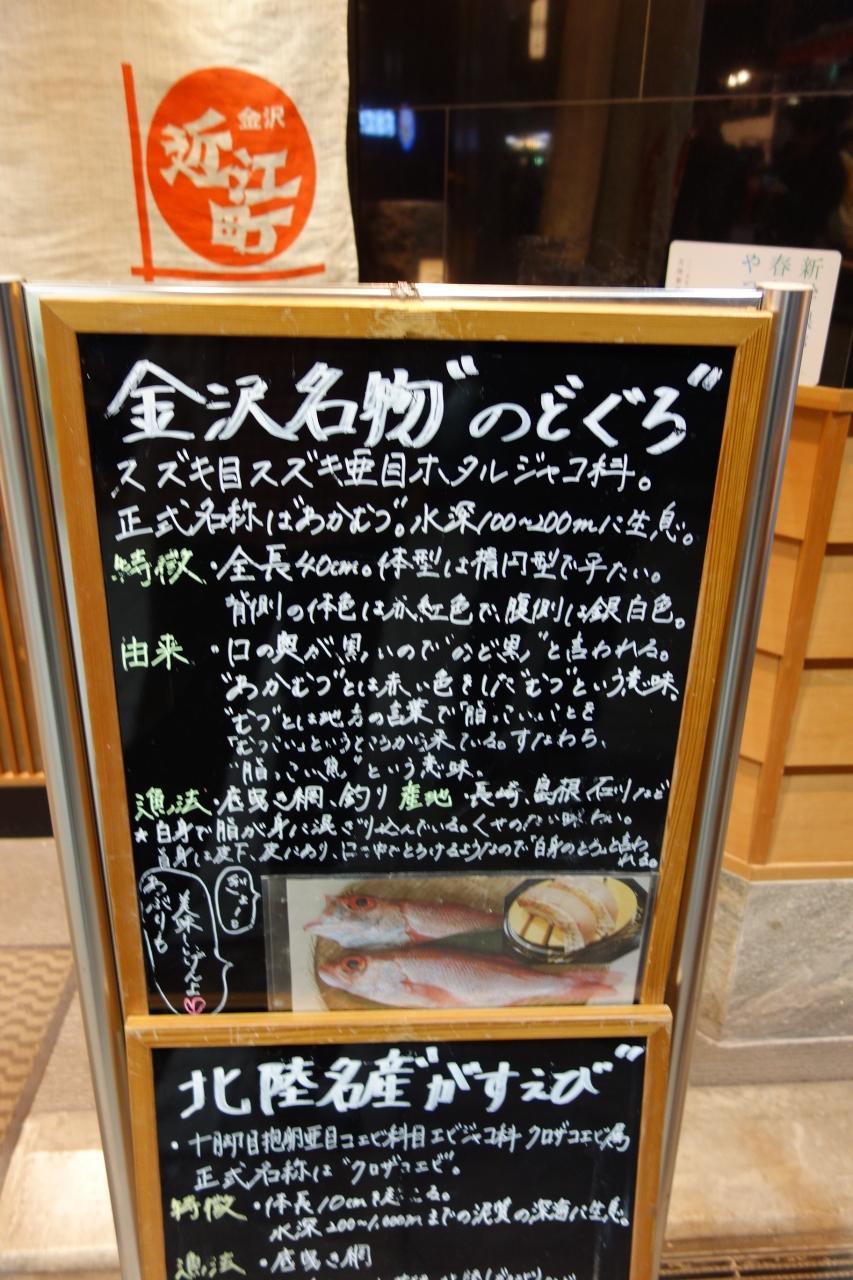 金沢
近江町
新春
や
金沢名物"のどぐろ"
スズキ目スズキ亜目ホタルジャコ科。
正式名称は"あかむつ"。水深100~200mに生息。
特徴・全長40cm。体型は楕円型で平たい。
背側の体色は赤紅色で、腹側は銀白色。
由来・口の奥が黒いので"のど黒"と言われる。
"あかむつ"とは赤い色をした"むつ"という意味。
"むつ"とは地方の言葉で「脂っこい」ことを
「むつこい」というところから来ている。すなわち、
"脂っこい魚"という意味。
漁法・底曳き網、釣り 産地・長崎、島根、石川など
★白身で脂が身に混ざり込んでいる。くせのない味わい。
皮下、口の中でとろけるようなので「白身のとろ」と言われる。
あぶりも
美味しいげんよ♡
北陸名産"がすえび"
・十脚目抱卵亜目コエビ科目エビジャコ科 クロザコエビ属
正式名称は"クロザコエビ"。
特徴・体長10cmを起こる。
水深200~1,000mまでの泥質の深海に生息。
漁法・底曳き網